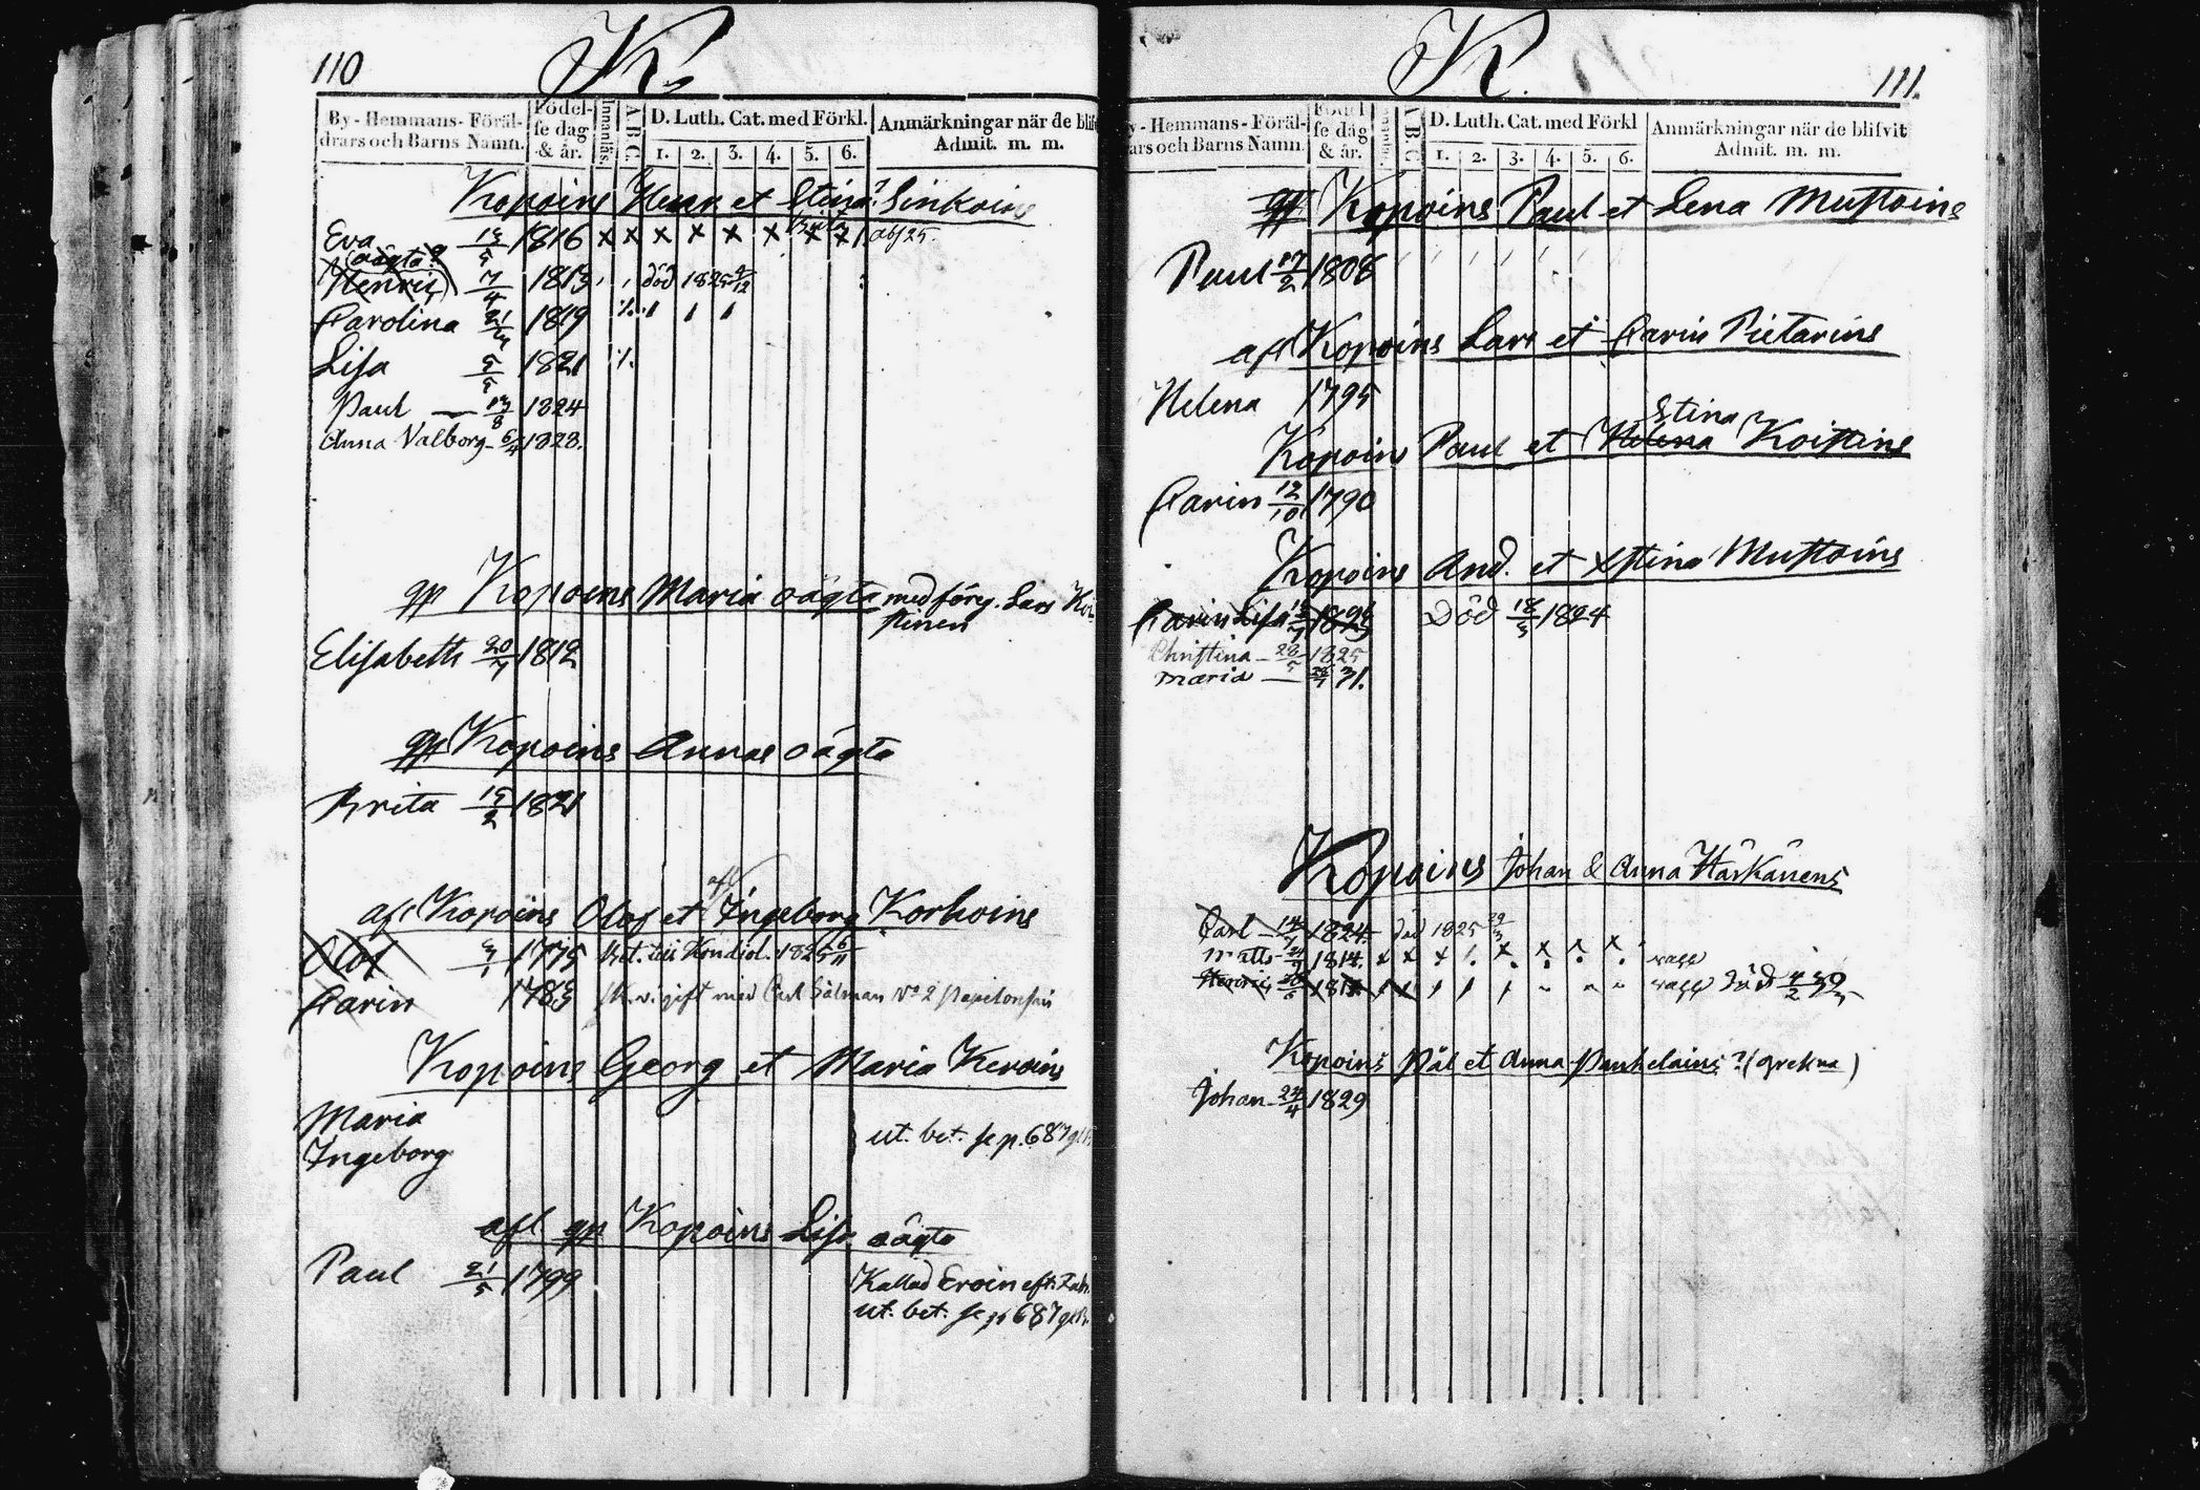 110
K.
By-Hemmans-Föräl-
drars och Barns Namn.
Födel-
se dag
& år.
Innanläs.
A B C
D. Luth. Cat. med Förkl.
1. 2. 3. 4. 5. 6.
Anmärkningar när de blif
Admit. m. m.
Kopoins Henr et Stina? Sinkoins
Brita
Eva 1816 x x x x x x x x abs 25.
oägta?
Henric 7/4 1813 död 1825 9/12
Carolina 1819
Lisa 5/5 1821
Paul — 17/8 1824
Anna Valborg - 6/4 1828.
gp Kopoins Maria oägta med förg. Lars Koi-
stinen
Elisabeth 20/7 1812
gp Kopoins Annas oägta
Brita 15/2 1821
afl Kopoins Olof et afl Ingeborg Korhoins
Olof 1775 bet. till Kondiol. 1825 6/11
Carin 1783 gift med Carl Sälman No 2
Kopoins Georg et Maria Kervins
Maria
Ingeborg
ut. bet. se p. 687 gl B.
afl gp Kopoins Lisa oägta
Paul 21/5 1799
Kallad Eroin eft.
ut. bet. se p 687 gl B.
K.
111.
y-Hemmans-Föräl-
ars och Barns Namn
Födel
se dag
& år.
A B C
D. Luth. Cat. med Förkl
1. 2. 3. 4. 5. 6.
Anmärkningar när de blifvit
Admit. m. m.
gp Kopoins Paul et Lena Mustoins
Paul 17/2 1808
afl Kopoins Lars et Carin Pietarins
Helena 1795
Stina
Kopoin Paul et Helena Koistins
Carin 12/10 1790
Kopoins And. et Xstina Mustoins
Carin Lisa Död 18/3 1824
Christina - 28/5 1825
Maria — 31.
Kopoins Johan & Anna Härkänens
Carl - 1824. död 1825 29/3
Matts - 1814. x x x
Henric död 4/2
Kopoins Pål et Anna Panhelains? (Grekna)
Johan - 24/4 1829